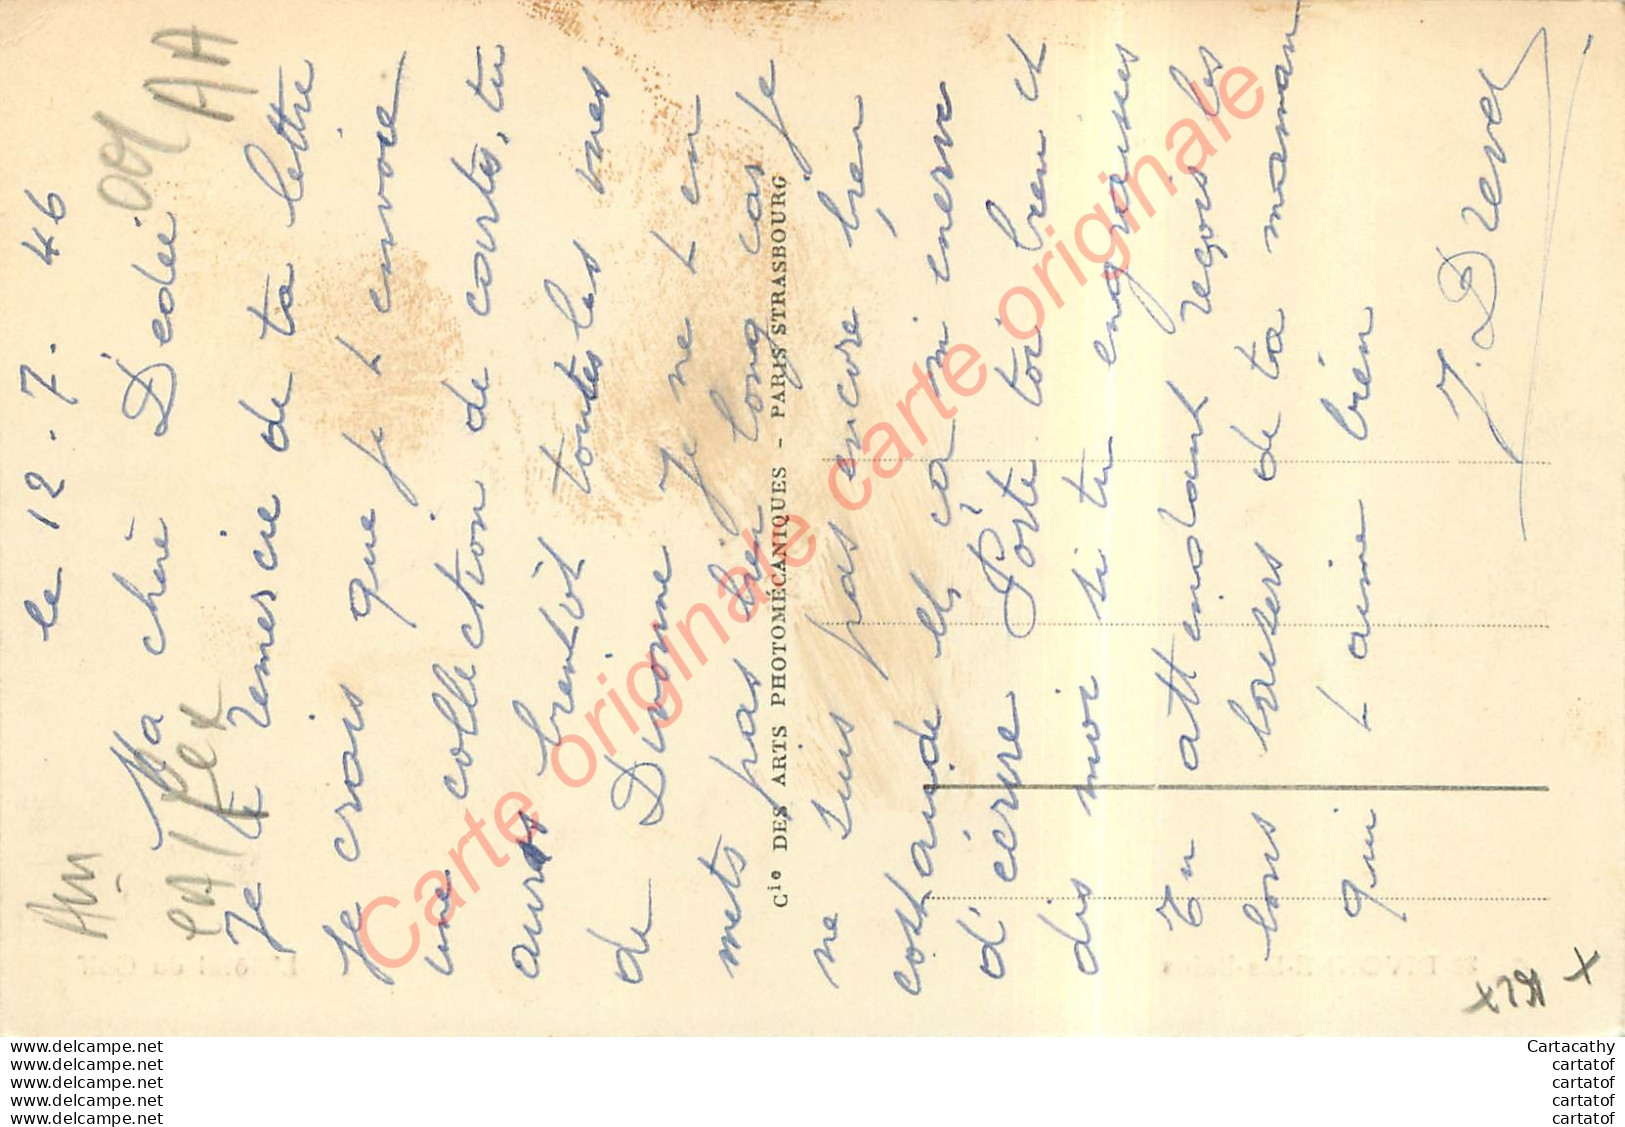 le 12.7.46
Ma chère Dédée
Je te remercie de ta lettre
Je crois que je t envoie
une collection de cartes, tu
auras bientôt toutes les vues
de Divonne. Je ne t en
mets pas bien long car je
ne suis pas encore bien
costaude et ça m'enerve
d'écrire. Porte toi bien et
dis moi si tu engraisses
En attendant reçois les
bons baisers de ta maman
qui t aime bien
J. Drevet
Cie DES ARTS PHOTOMÉCANIQUES - PARIS-STRASBOURG
Carte originale carte originale
AA
Ain
L'Hôtel du Golf
DIVONNE-les-Bains
www.delcampe.net
www.delcampe.net
www.delcampe.net
www.delcampe.net
www.delcampe.net
Cartacathy
cartatof
cartatof
cartatof
cartatof